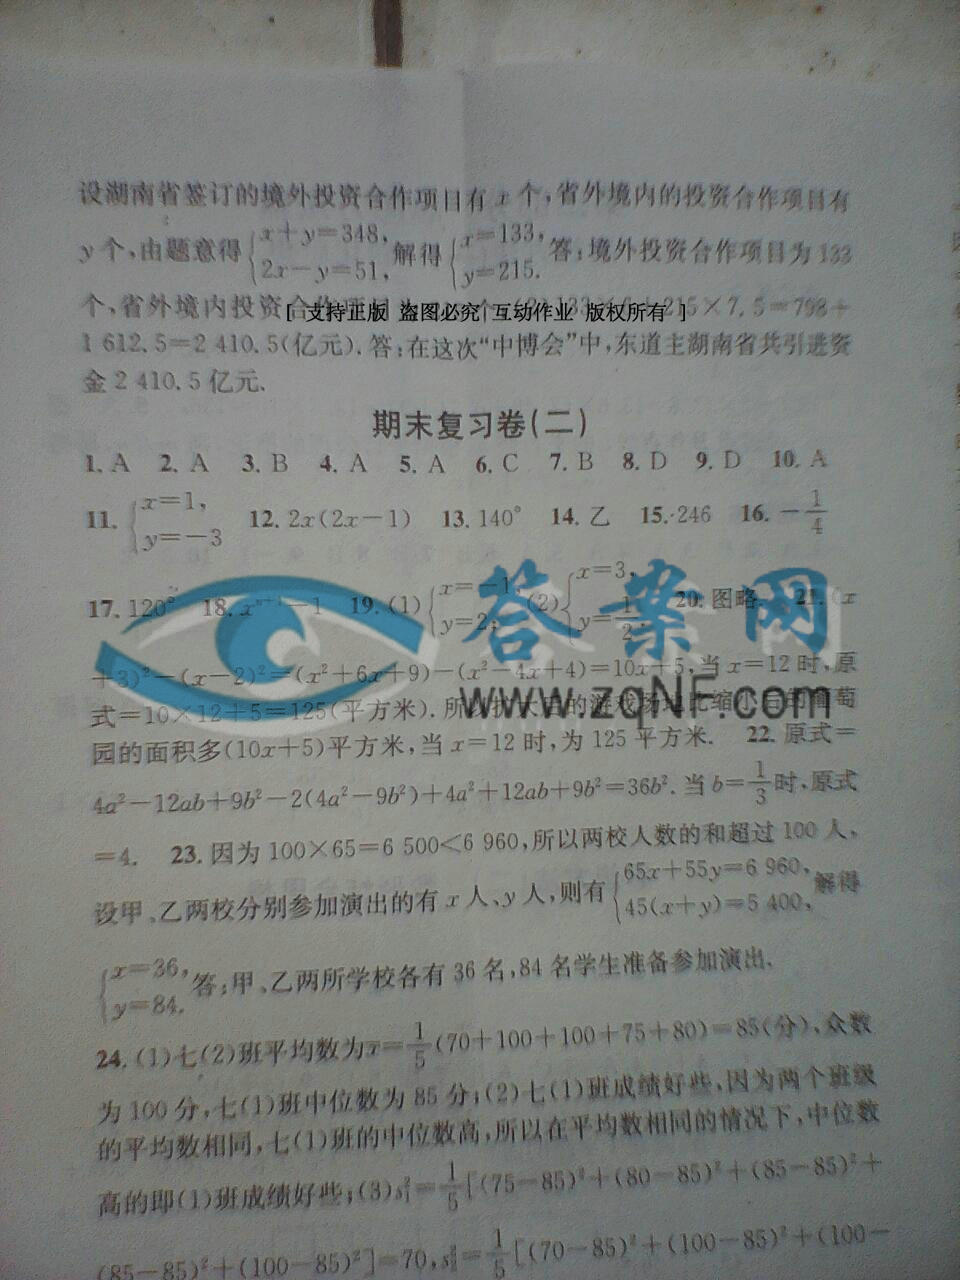 设湖南省签订的境外投资合作项目有 x 个,省外境内的投资合作项目有
y 个,由题意得{x+y=348, 2x-y=51, 解得{x=133, y=215. 答:境外投资合作项目为 133
个,省外境内投资合
[ 支持正版 盗图必究 互动作业 版权所有 ]
215×7.5=798+
1 612.5=2 410.5(亿元).答:在这次“中博会”中,东道主湖南省共引进资
金 2 410.5 亿元.
期末复习卷(二)
1. A 2. A 3. B 4. A 5. A 6. C 7. B 8. D 9. D 10. A
11. {x=1, y=-3 12. 2x(2x-1) 13. 140° 14. 乙 15. 246 16. -1/4
17. 120° 18. -1 19. (1){x=-1, y=2; (2){x=3, 20. 图略. 21. (x
答案网
+3)²-(x-2)²=(x²+6x+9)-(x²-4x+4)=10x+5,当 x=12 时,原
www.zqNF.com
式=10×12+5=125(平方米).所以扩大后的游戏场地比缩小后的葡萄
园的面积多(10x+5)平方米,当 x=12 时,为 125 平方米. 22. 原式=
4a²-12ab+9b²-2(4a²-9b²)+4a²+12ab+9b²=36b².当 b=1/3时,原式
=4. 23. 因为 100×65=6 500<6 960,所以两校人数的和超过 100 人,
设甲、乙两校分别参加演出的有 x 人、y 人,则有{65x+55y=6 960, 45(x+y)=5 400, 解得
{x=36, y=84. 答:甲、乙两所学校各有 36 名,84 名学生准备参加演出.
24. (1)七(2)班平均数为x̄=1/5(70+100+100+75+80)=85(分),众数
为 100 分,七(1)班中位数为 85 分;(2)七(1)班成绩好些,因为两个班级
的平均数相同,七(1)班的中位数高,所以在平均数相同的情况下,中位数
高的即(1)班成绩好些;(3)s₁²=1/5[(75-85)²+(80-85)²+(85-85)²+
(85-85)²+(100-85)²]=70,s₂²=1/5[(70-85)²+(100-85)²+(100-